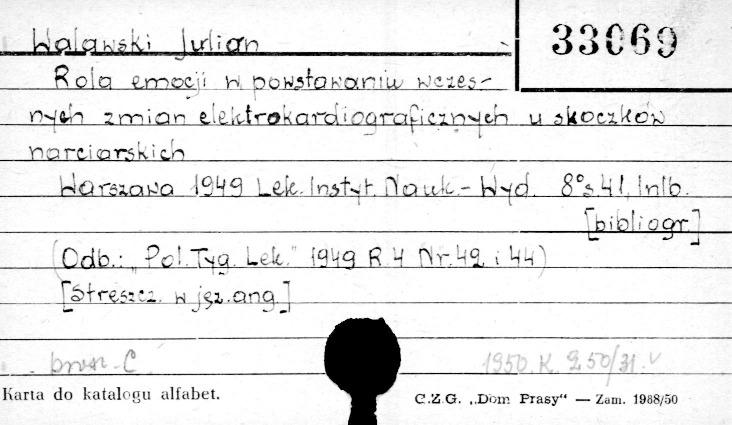 Walawski Julian
33069
Rola emocji w powstawaniu wczes-
nych zmian elektrokardiograficznych u skoczków
narciarskich
Warszawa 1949 Lek. Instyt. Nauk.-Wyd. 8° s. 4 l. lnlb.
[bibliogr.]
(Odb.: „Pol. Tyg. Lek." 1949 R. 4 Nr. 42 i 44)
[Streszcz. w jęz. ang.]
brosz. C 1950. K. 250/31. v
Karta do katalogu alfabet.
C.Z.G. „Dom Prasy“ — Zam. 1988/50